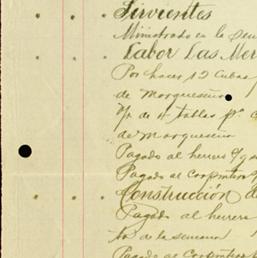 Sirvientes
Ministrado en la sem
Labor Las Mer
Por hacer 12 Cubas
de Marqueseño
de 4 tablas pa.
de Marqueseño
Pagado al herrero
Pagado al Carpintero
Construcción d
Pagado al herrero
de la semana
Pagado al Carpintero